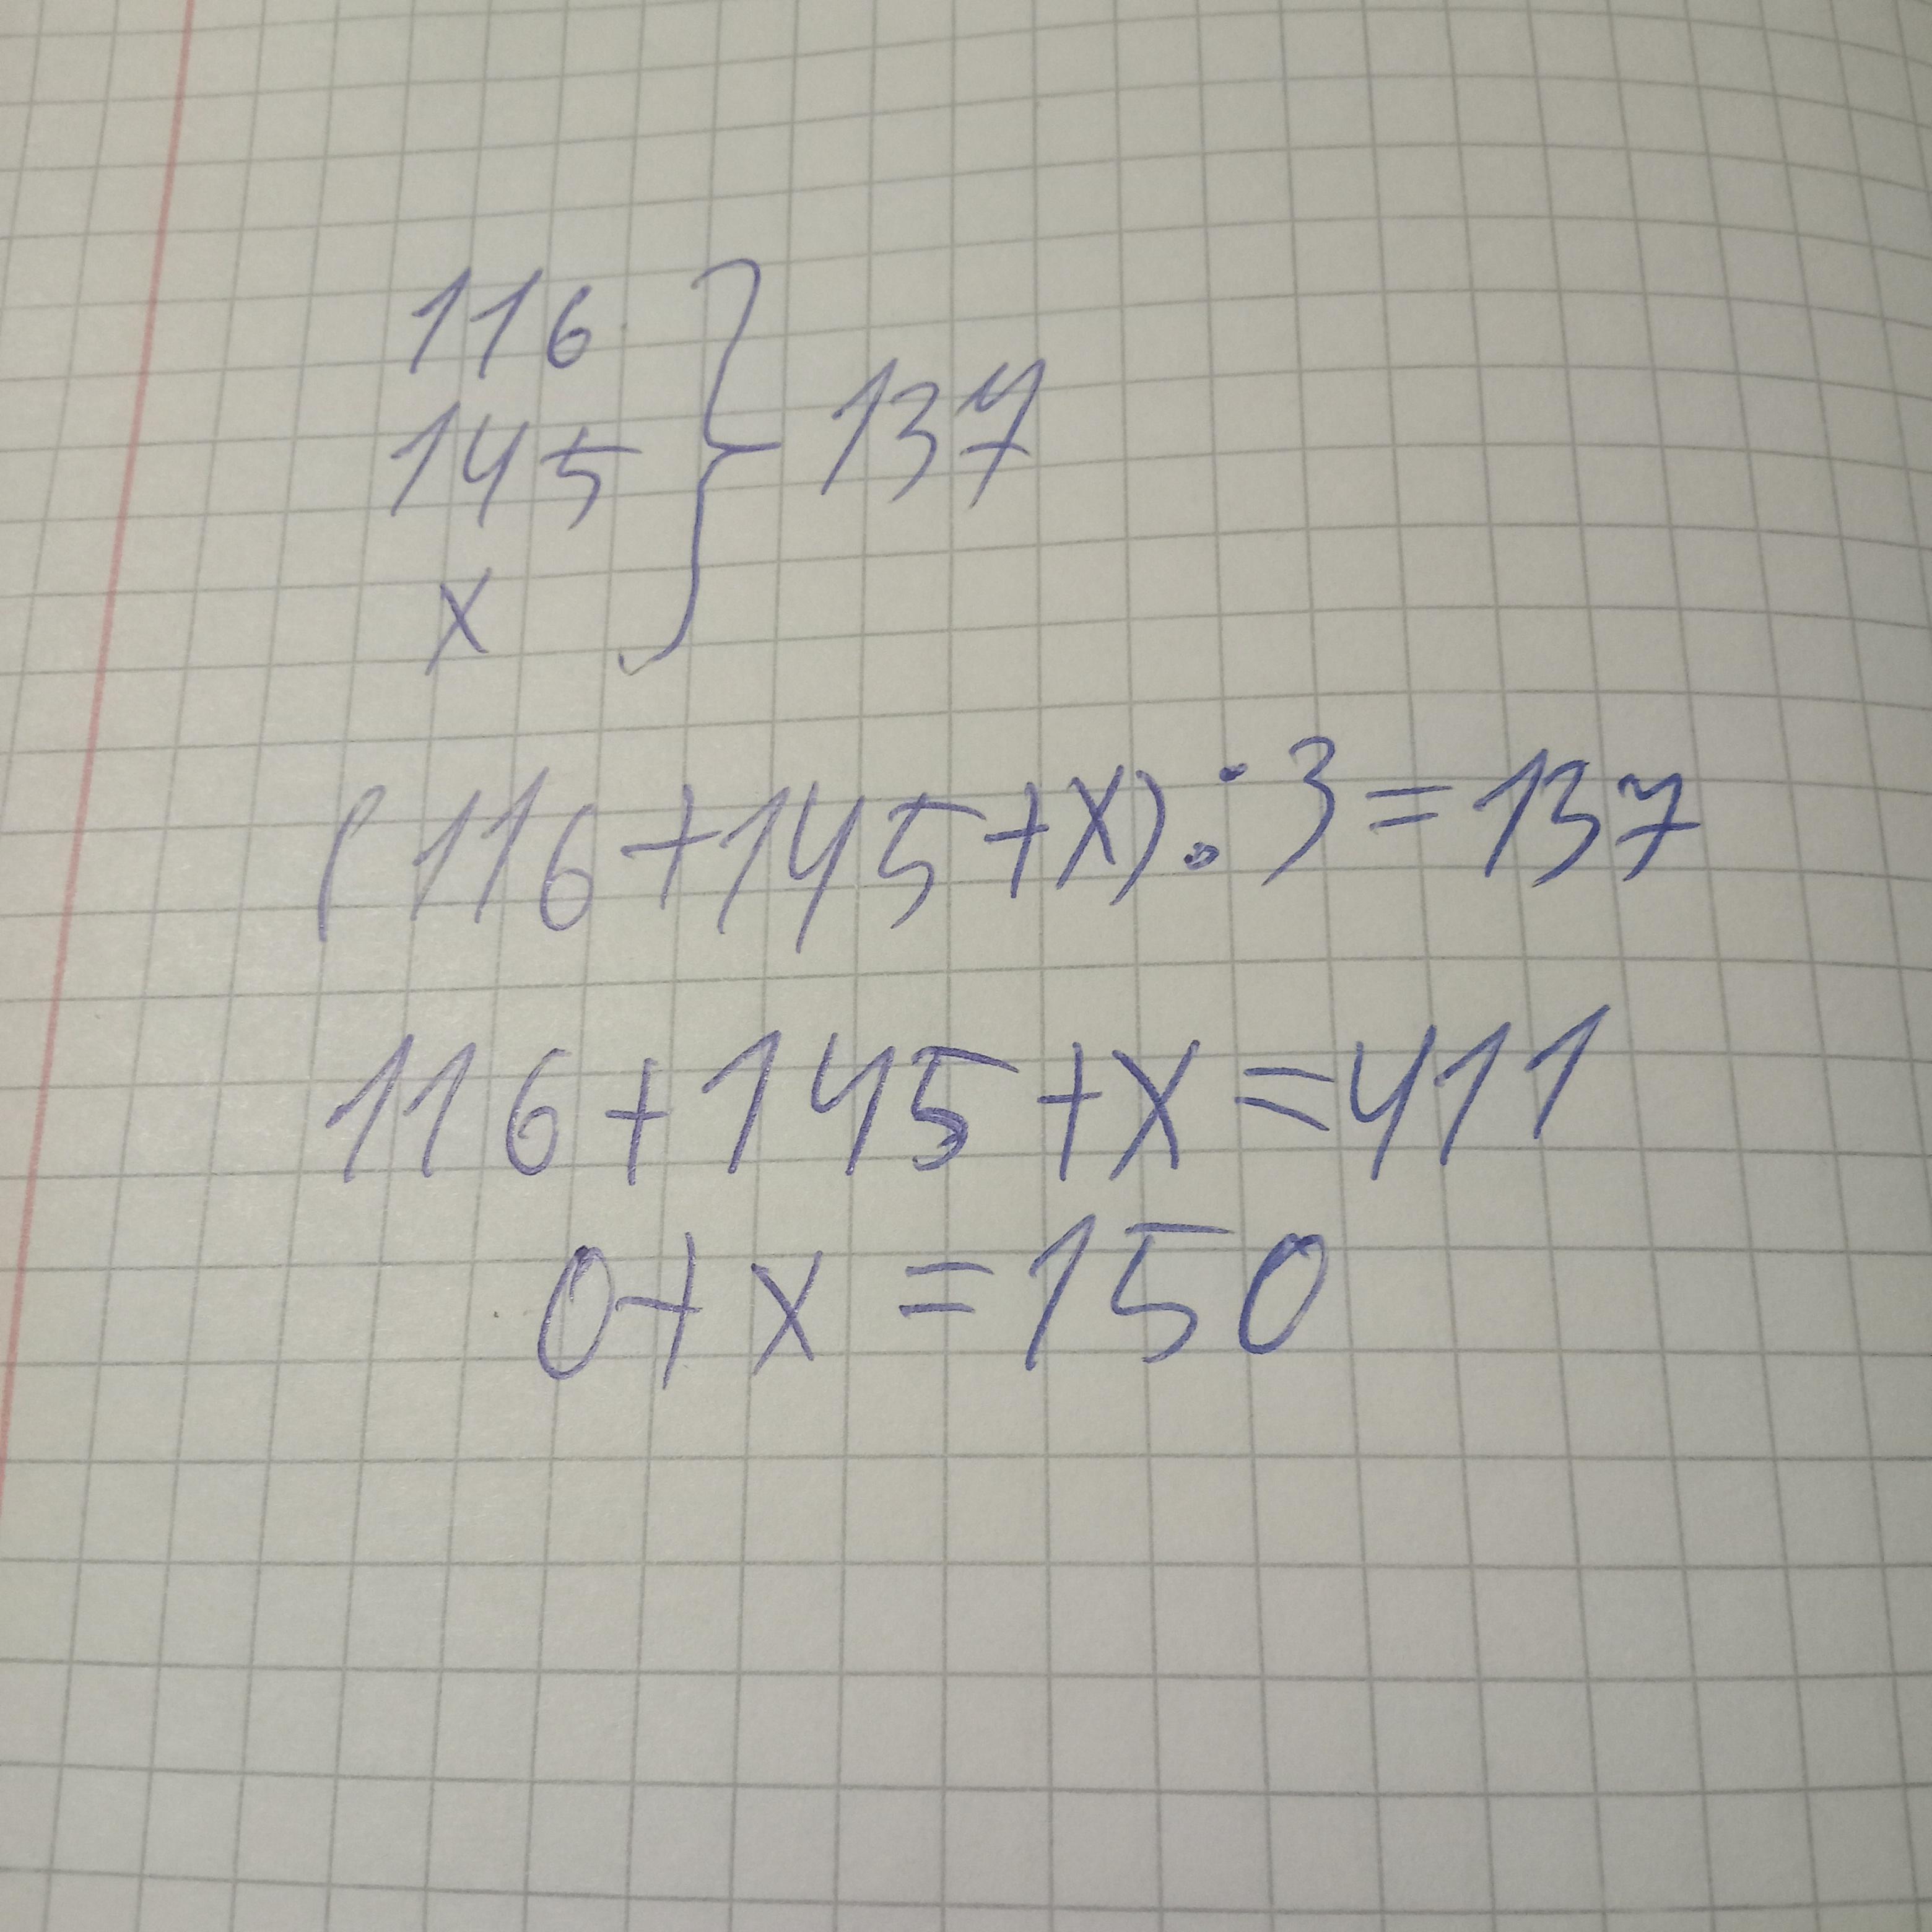 116
145 } 137
x
(116+145+x):3=137
116+145+x=411
0+x=150